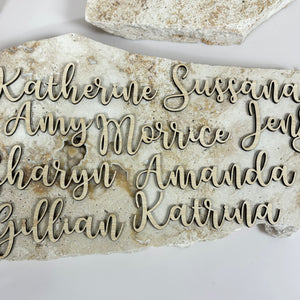 Katherine Sussana
Amy Morrice Jen
Charyn Amanda
Gillian Katrina